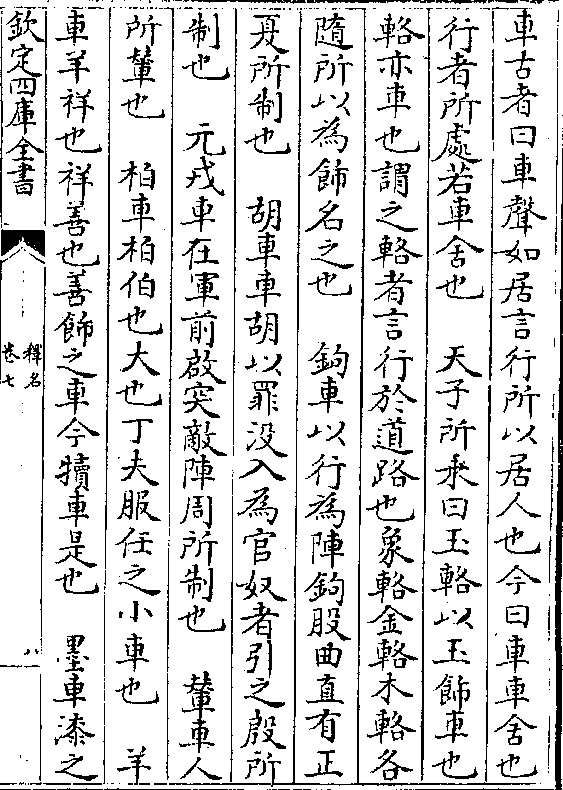 車古者曰車聲如居言行所以居人也今曰車車舍也
行者所處若車舍也　天子所乘曰玉輅以玉飾車也
輅亦車也謂之輅者言行於道路也象輅金輅木輅各
隨所以為飾名之也　鉤車以行為陣鉤股曲直有正
夏所制也　胡車車胡以罪没入為官奴者引之殷所
制也　元戎車在軍前啟突敵陣周所制也　輦車人
所輦也　柏車柏伯也大也丁夫服任之小車也　羊
車羊祥也祥善也善飾之車今犢車是也　墨車漆之
欽定四庫全書
釋名
卷七
八